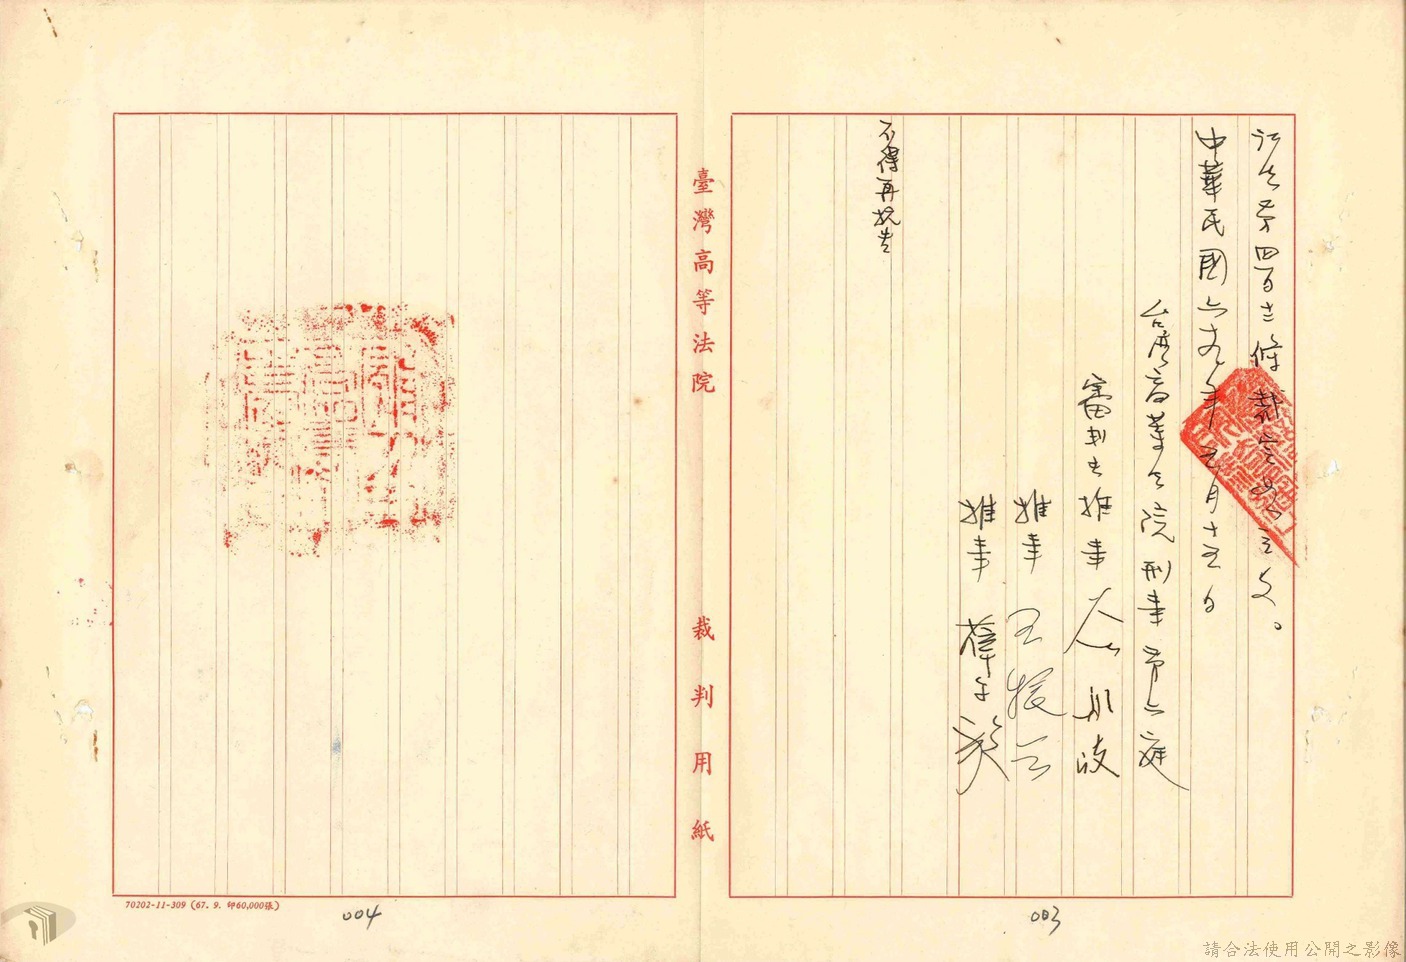 訟法第四百十二條裁定如主文。
中華民國六十九年五月十五日
台灣高等法院刑事第六庭
審判長推事
推事 王振云
推事
不得再抗告
臺灣高等法院 裁判用紙
70202-11-309 (67. 9. 印60,000張)
003
004
請合法使用公開之影像